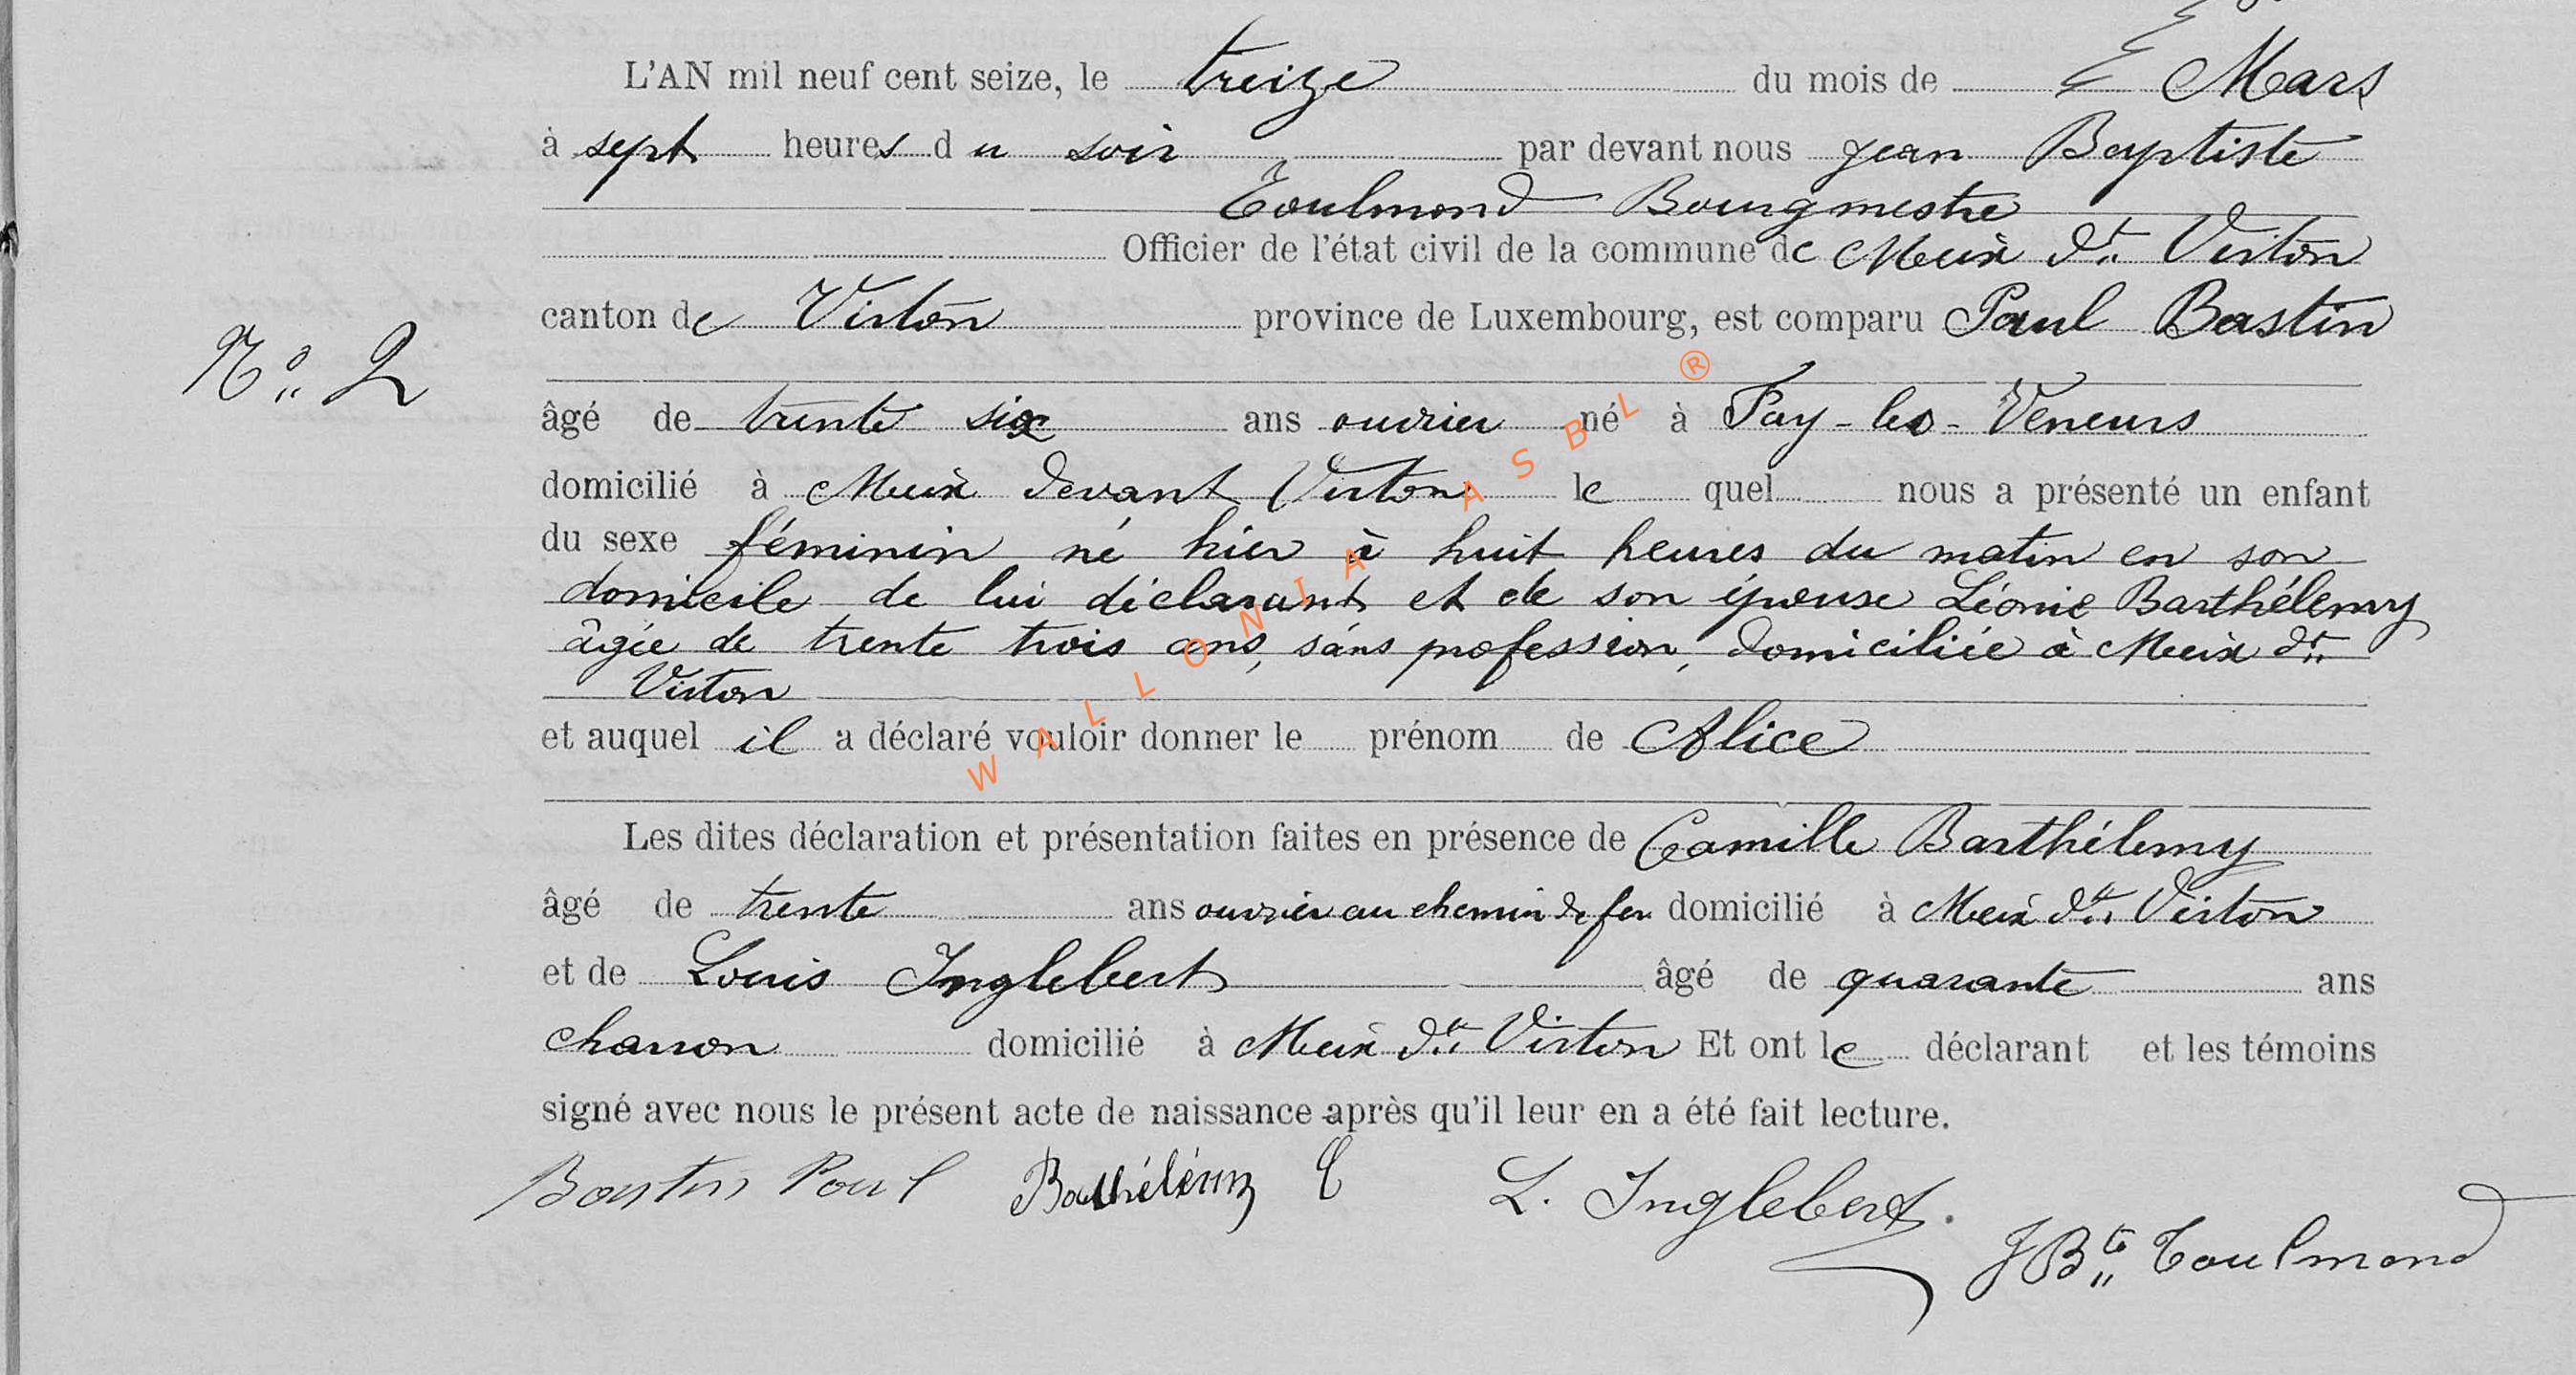 L'AN mil neuf cent seize, le treize du mois de Mars
à sept heures du soir par devant nous Jean Baptiste
Toulmond Bourgmestre
Officier de l'état civil de la commune de Meix dt. Virton
canton de Virton province de Luxembourg, est comparu Paul Bastin
N° 2
âgé de trente six ans ouvrier né à Fay-les-Veneurs
domicilié à Meix devant Virton lequel nous a présenté un enfant
du sexe féminin né hier à huit heures du matin en son
domicile de lui déclarant et de son épouse Léonie Barthélemy
âgée de trente trois ans, sans profession, domiciliée à Meix dt.
Virton
et auquel il a déclaré vouloir donner le prénom de Alice
Les dites déclaration et présentation faites en présence de Camille Barthélemy
âgé de trente ans ouvrier au chemin de fer domicilié à Meix dt. Virton
et de Louis Inglebert âgé de quarante ans
charron domicilié à Meix dt. Virton Et ont le déclarant et les témoins
signé avec nous le présent acte de naissance après qu'il leur en a été fait lecture.
Bastin Paul Barthélémy C L. Inglebert.
JBte Toulmond
WALLONIA ASBL ®